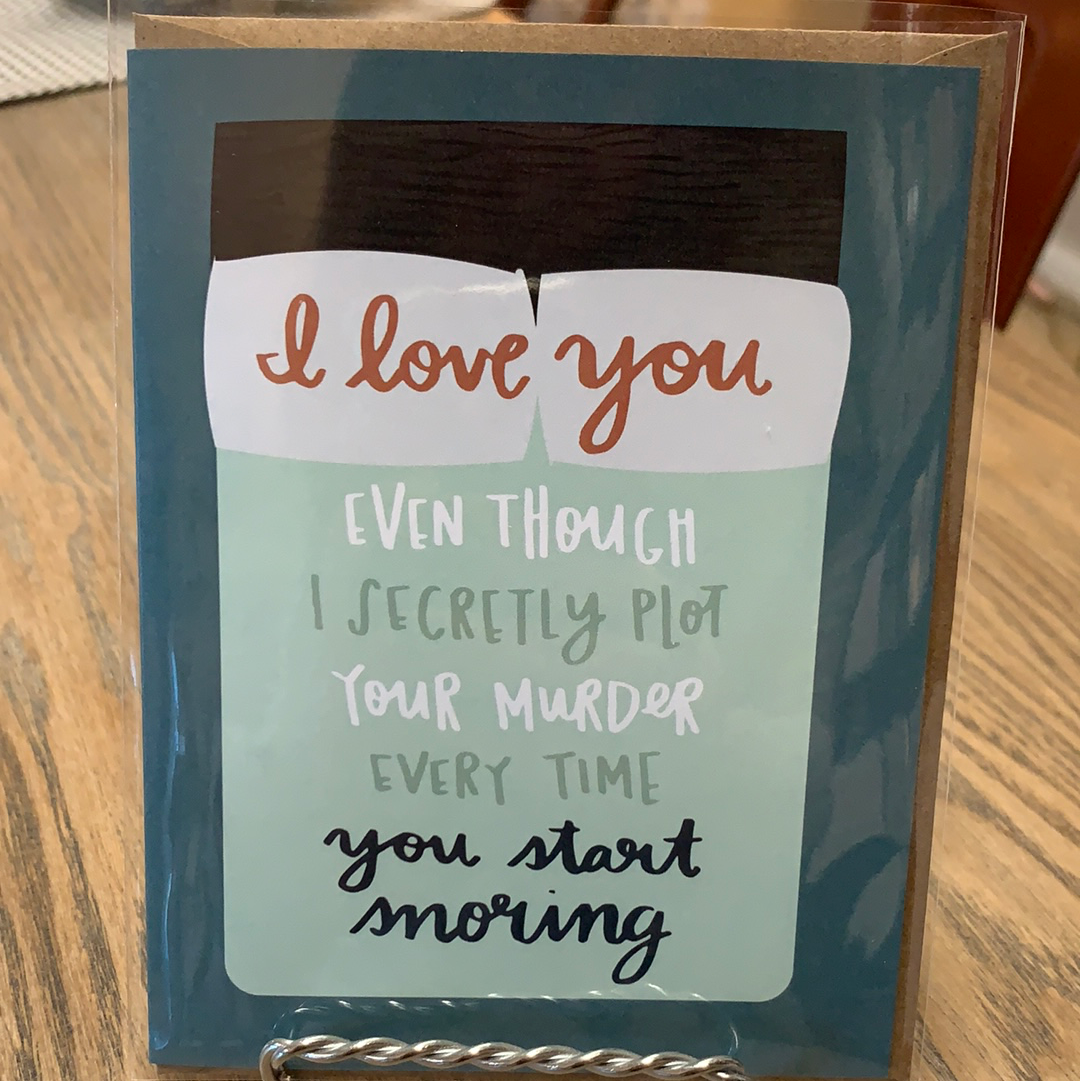 I love you
EVEN THOUGH
I SECRETLY PLOT
YOUR MURDER
EVERY TIME
you start
snoring